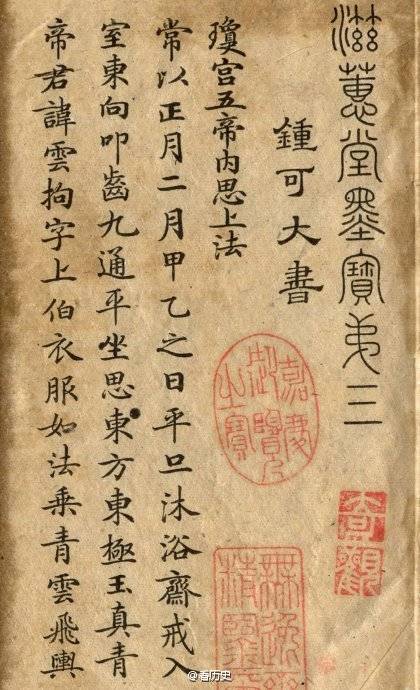 滋蕙堂墨寶弟三
鍾可大書
瓊宫五帝内思上法
常以正月二月甲乙之日平旦沐浴齋戒入
室東向叩齒九通平坐思東方東極玉真青
帝君諱雲拘字上伯衣服如法乘青雲飛輿
嘉慶御覽之寶
奇觀
@看历史